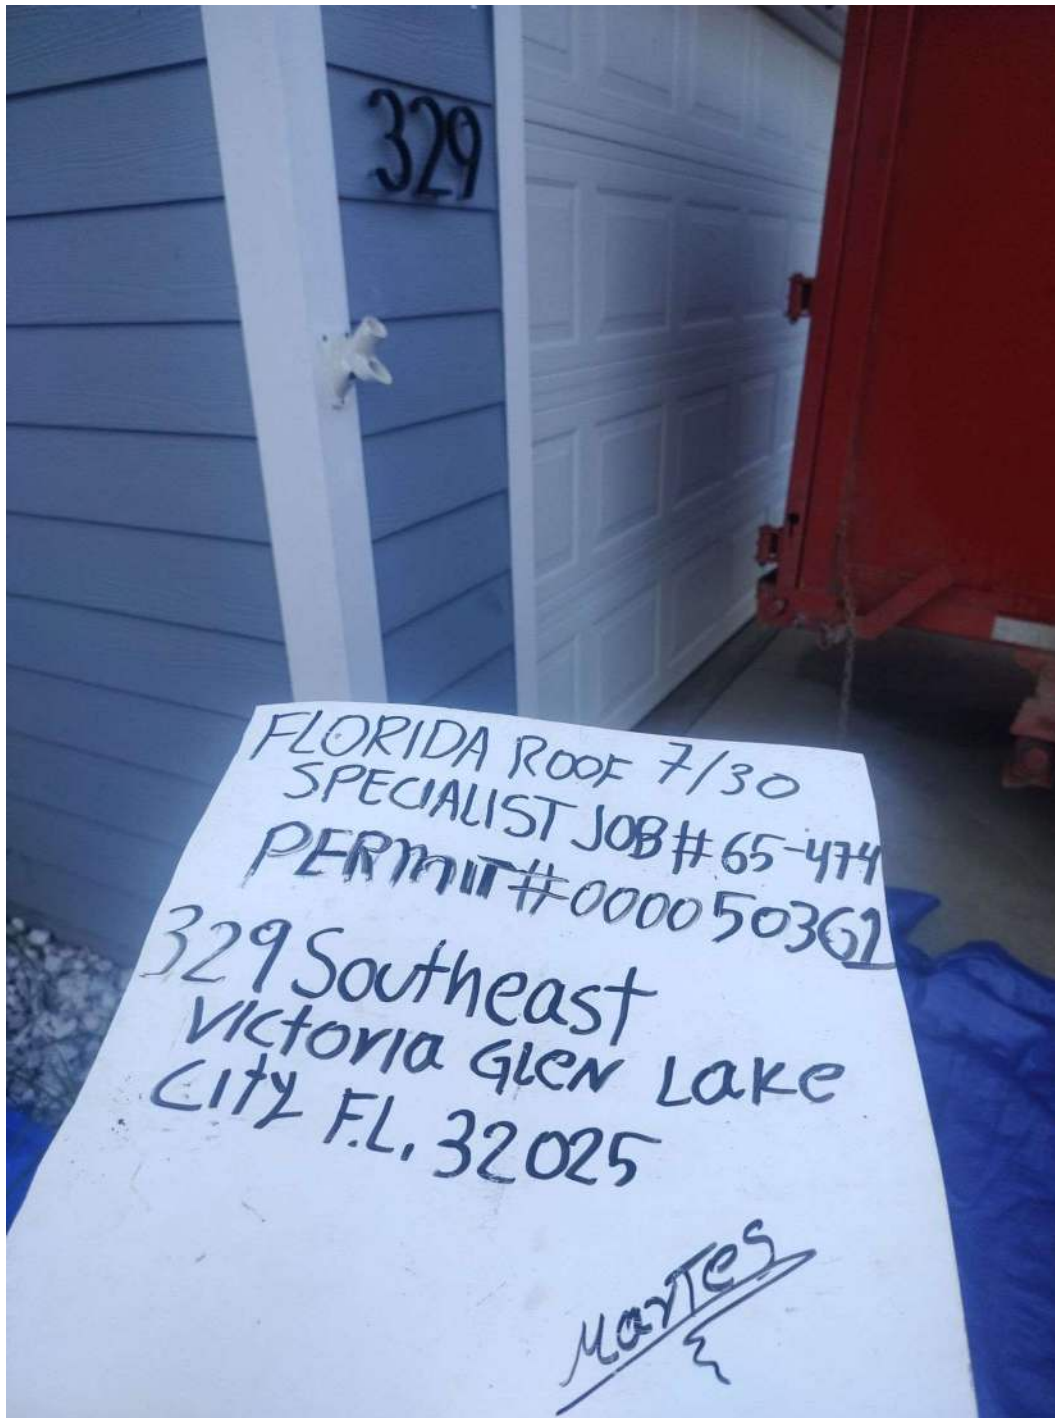 329
FLORIDA ROOF 7/30
SPECIALIST JOB # 65-474
PERMIT # 000050362
329 Southeast
Victoria Glen Lake
City F.L. 32025
Martes